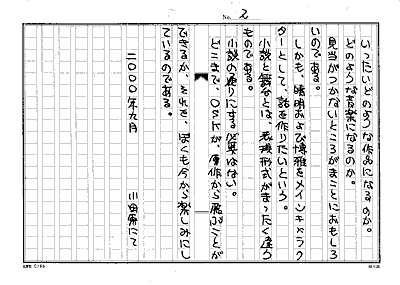 No. 2
いったいどのような作品になるのか。
どのような音楽になるのか。
見当がつかないところがまことにおもしろ
いのである。
しかも、晴明および博雅をメインキャラク
ターとして、話を作りたいという。
小説と舞台とは、表現形式がまったく違う
ものである。
小説の通りにする必要はない。
どこまで、OSKが、原作から飛ぶことが
できるか、それを、ぼくも今から楽しみにし
ているのである。
二〇〇〇年九月 小田原にて